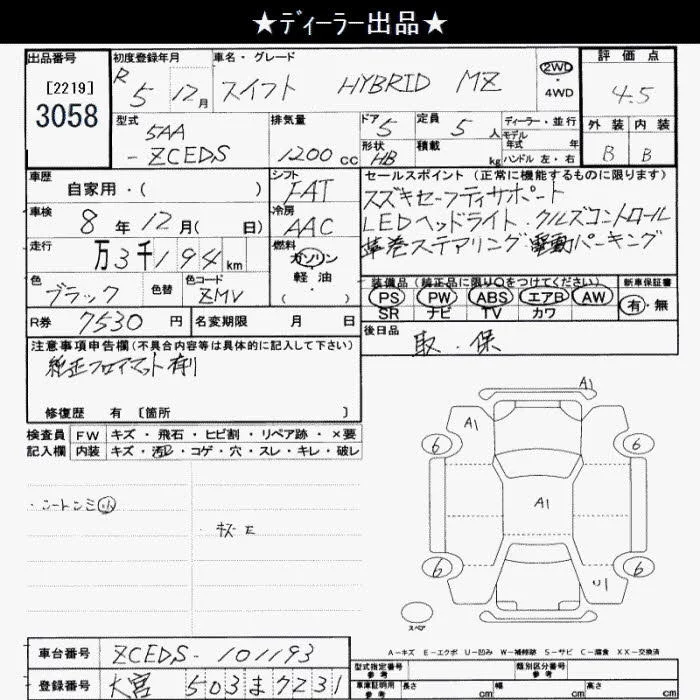 ★ディーラー出品★
出品番号
[2219]
3058
初度登録年月
R 5 12月
車名・グレード
スイフト HYBRID MZ
2WD
・
4WD
評価点
4.5
型式
5AA
-ZCEDS
排気量
1200cc
ドア
5
形状
HB
定員
5人
積載
kg
ディーラー・並行
モデル
年式 年
ハンドル 左・右
外装 内装
B B
車歴
自家用・( )
シフト
FAT
車検
8年12月( 日)
冷房
AAC
走行
万3千194km
燃料
ガソリン
・
軽・油
( )
色
ブラック
色替
色コード
ZMV
セールスポイント(正常に機能するものに限ります)
スズキセーフティサポート
LEDヘッドライト・クルズコントロール
革巻ステアリング 電動パーキング
装備品(純正品に限り○をつけてください)
PS PW ABS エアB AW
SR ナビ TV カワ
新車保証書
有・無
R券 7530円
名変期限 月 日
後日品
取・保
注意事項申告欄(不具合内容等は具体的に記入して下さい)
純正フロアマット有り
修復歴 有 [箇所 ]
検査員
記入欄
FW キズ・飛石・ヒビ割・リペア跡・×要
内装 キズ・汚レ・コゲ・穴・スレ・キレ・破レ
・シートシミ小
・キズ E
A1
A1
6
6
A1
6
6
U1
スペア
A-キズ E-エクボ U-凹み W-補修跡 S-サビ C-腐食 XX-交換済
車台番号 ZCEDS-101193
登録番号 大宮 503 ま 7231
型式指定番号
参考
類別区分番号
参考
車庫証明用
参考
長さ cm
幅 cm
高さ cm